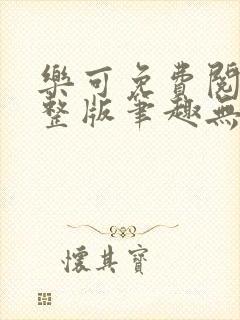 樂可免費閱
整版筆趣無
懷其寶